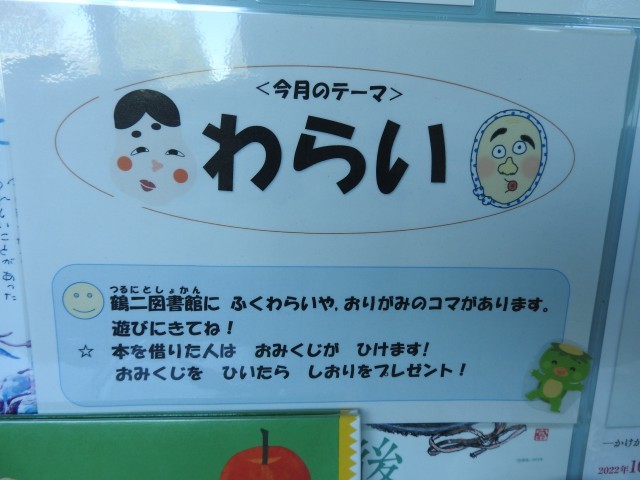 <今月のテーマ>
わらい
つるにとしょかん
鶴二図書館に ふくわらいや、おりがみのコマがあります。
遊びにきてね！
☆ 本を借りた人は おみくじが ひけます!
おみくじを ひいたら しおりをプレゼント！
後
―かけか
2022年10